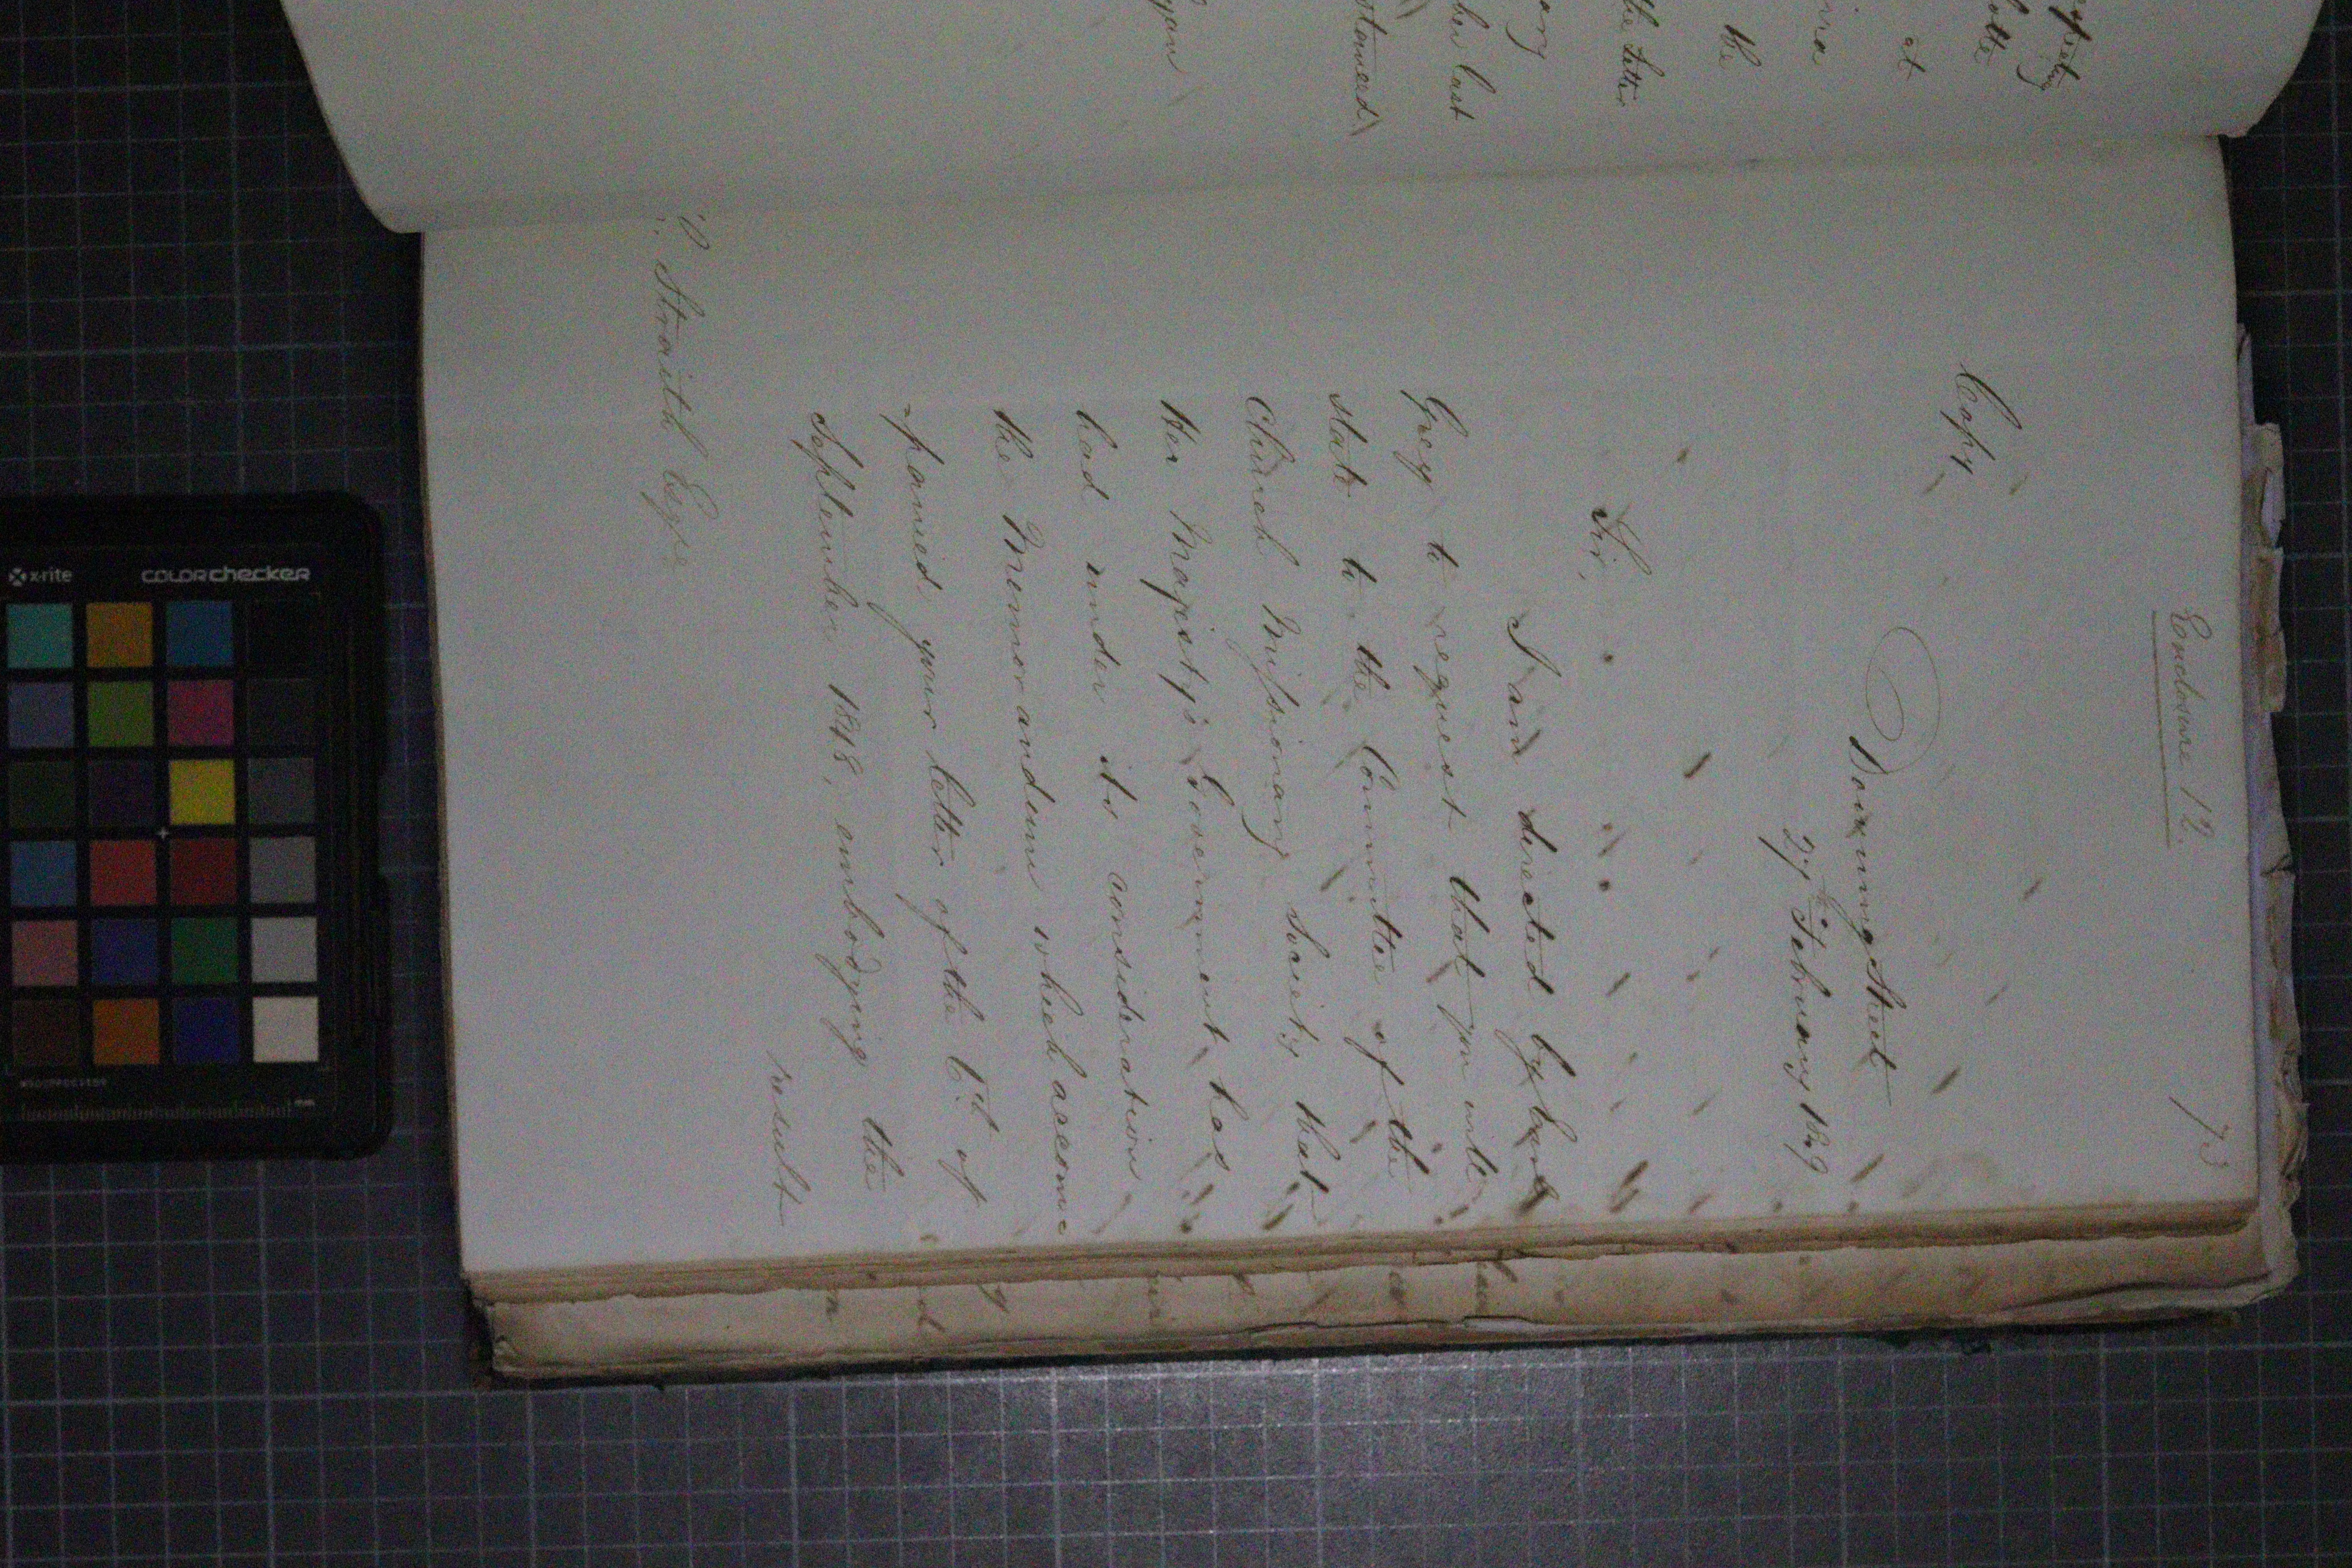 Enclosure 12.
73
Copy
Downing Street
27th February 1849
Sir,
I am directed by Earl
Grey to request that you will
state to the Committee of the
Church Missionary Society that
Her Majesty's Government has
had under its consideration
the Memorandum which accom
-panied your letter of the 6th of
September 1848, embodying the
result
Straith Esqre
the
at
the Letter
her last
x-rite
colorchecker